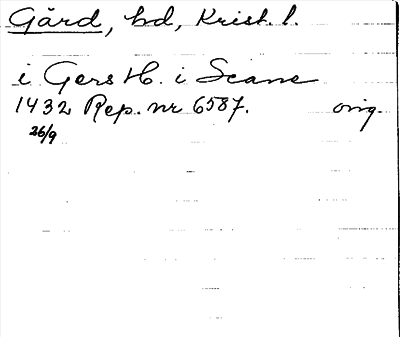 Gård, bd, Krist. l.
i Gers H. i Scane
1432 Rep. nr 6587. orig.
26/9